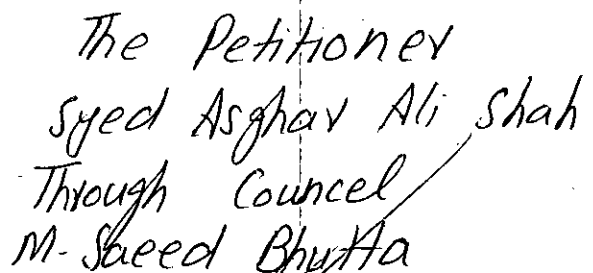 The Petitioner
Syed Asghar Ali Shah
Through Councel
M. Saeed Bhutta